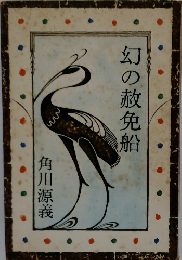 幻の赦免船
角川源義